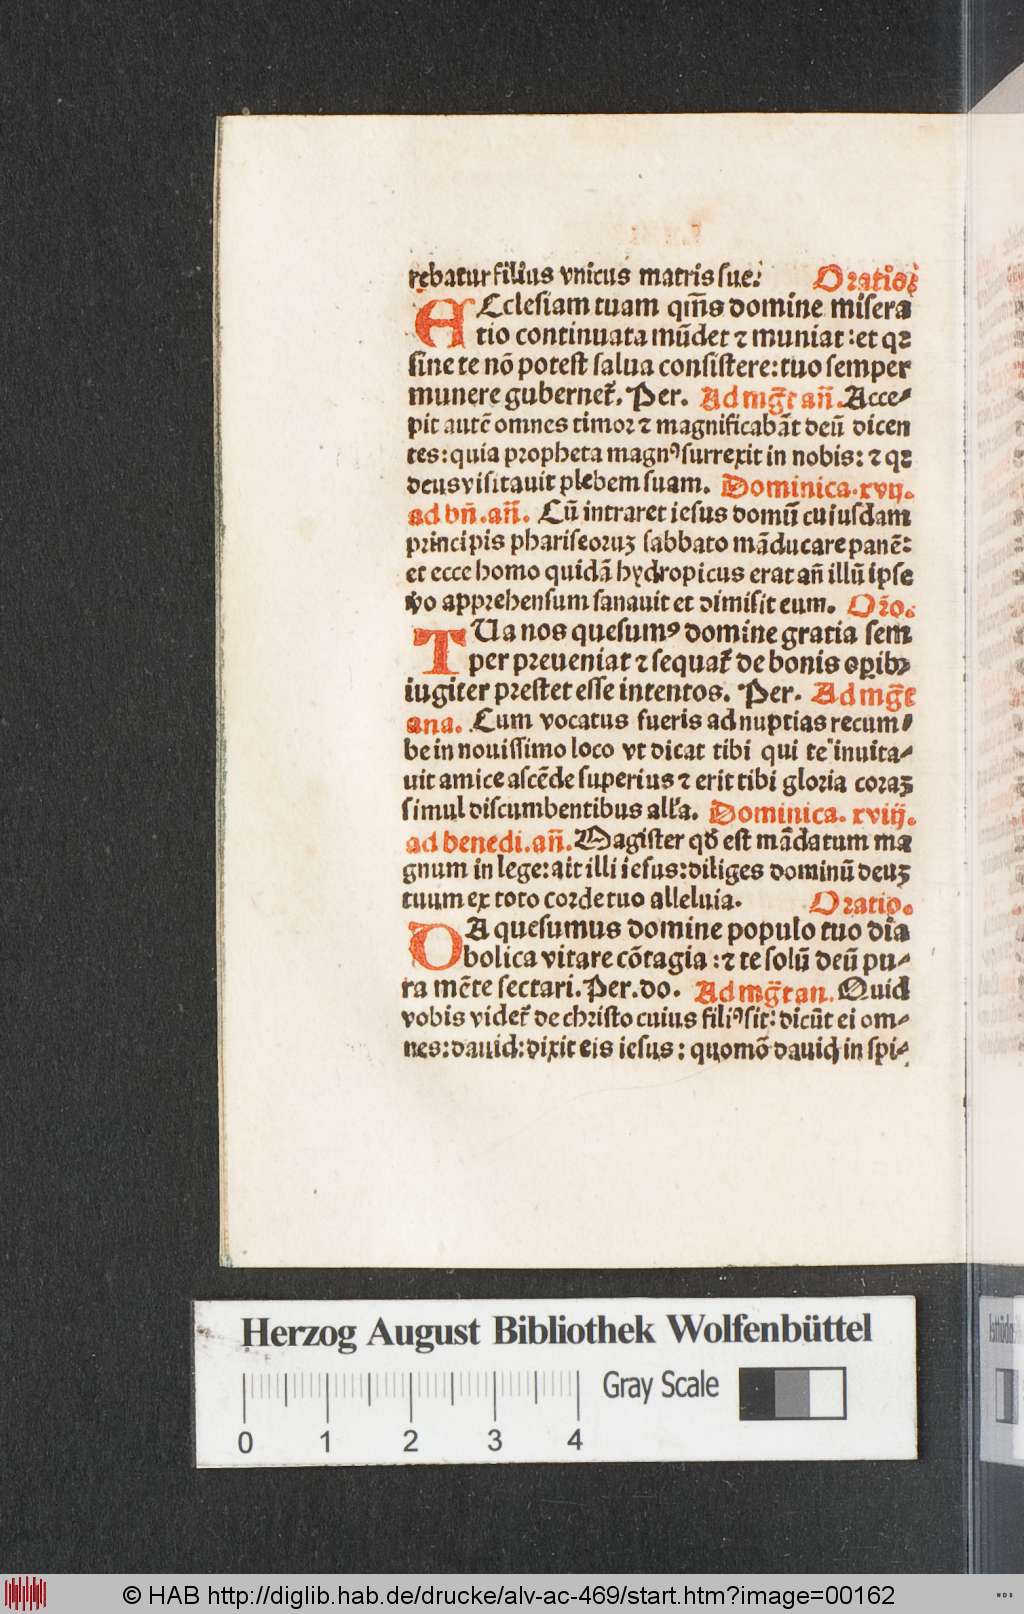 rebatur filius vnicus matris sue. Oratio.
ECclesiam tuam qm̄s domine misera
tio continuata mūdet ⁊ muniat: et qꝛ
sine te nō potest salua consistere: tuo semper
munere gubernet᷑. Per. Ad mg̅t an̄. Acce⸗
pit autē omnes timor ⁊ magnificabāt deū dicen
tes: quia propheta magnꝰ surrexit in nobis: ⁊ qꝛ
deus visitauit plebem suam. Dominica. xvij.
ad bn̄. an̄. Cū intraret iesus domū cuiusdam
principis phariseoruꝫ sabbato māducare panē:
et ecce homo quidā hydropicus erat an̄ illū ipse
ꝟo apprehensum sanauit et dimisit eum. Orō.
TUa nos quesumꝰ domine gratia sem
per preueniat ⁊ sequat᷑ de bonis oꝑibꝫ
iugiter prestet esse intentos. Per. Ad mg̅t
ana. Cum vocatus fueris ad nuptias recum⸗
be in nouissimo loco vt dicat tibi qui te inuita⸗
uit amice ascēde superius ⁊ erit tibi gloria coraꝫ
simul discumbentibus all'a. Dominica. xviij.
ad benedi. an̄. Magister qđ est mādatum ma
gnum in lege: ait illi iesus: diliges dominū deuꝫ
tuum ex toto corde tuo alleluia. Oratio.
DA quesumus domine populo tuo dia
bolica vitare cōtagia: ⁊ te solū deū pu⸗
ra mēte sectari. Per. do. Ad mg̅t an. Quid
vobis videt᷑ de christo cuius filiꝰ sit: dicūt ei om⸗
nes: dauid: dixit eis iesus: quomō dauid in spi⸗
Herzog August Bibliothek Wolfenbüttel
Gray Scale
0 1 2 3 4
© HAB http://diglib.hab.de/drucke/alv-ac-469/start.htm?image=00162